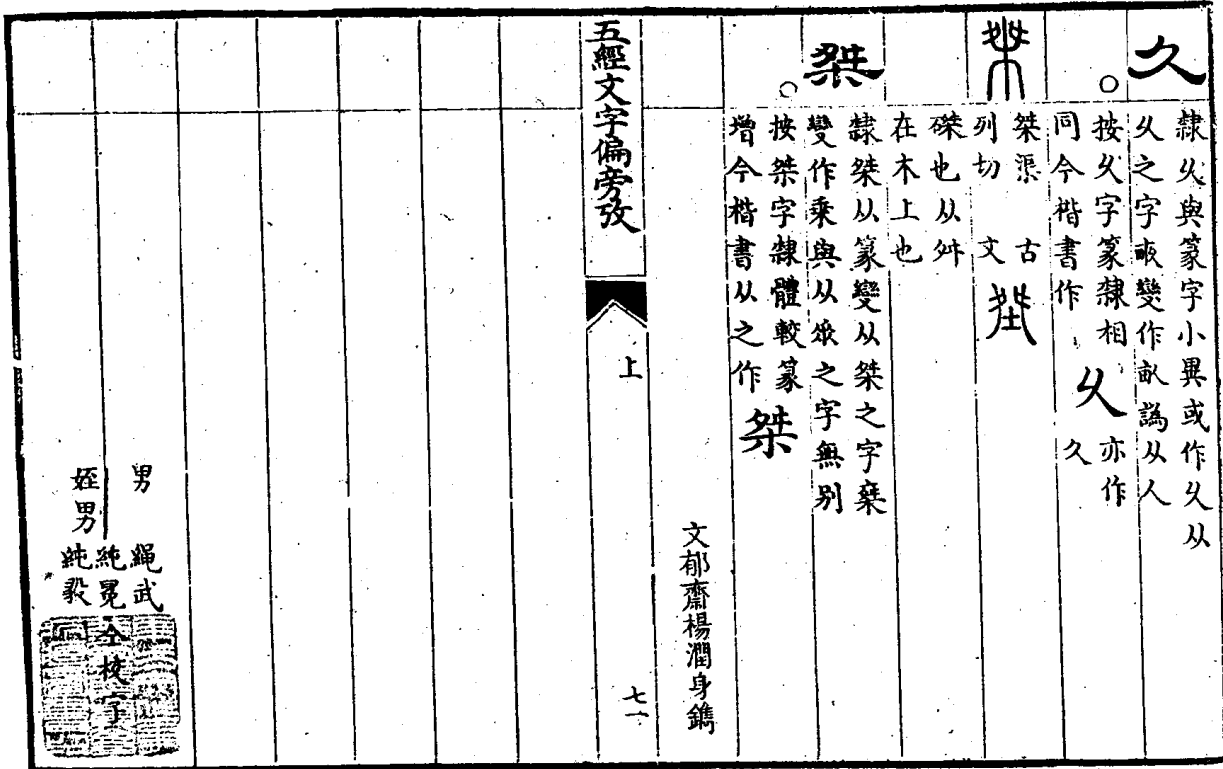 久
隸久與篆字小異或作久从
久之字畞變作畝譌从人
按久字篆隸相
同今楷書作
久
亦作
久
桀
桀渠
列切
古
文
磔也从舛
在木上也
桀
隸桀从篆變从桀之字椉
變作乘與从乑之字無别
按桀字隸體較篆
增今楷書从之作
桀
文郁齋楊潤身鐫
五經文字偏旁攷
上
七一
男
繩武
純冕
姪男
純毅
仝校字